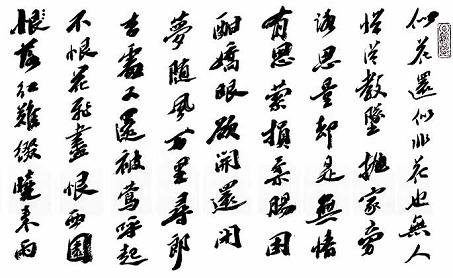 似花還似非花也無人
惜從教墜抛家旁
路思量却是無情
有思縈損柔腸困
酣嬌眼欲開還閉
夢随風万里尋郎
去處又還被鶯呼起
不恨花飛盡恨西園
恨落红難綴曉來雨